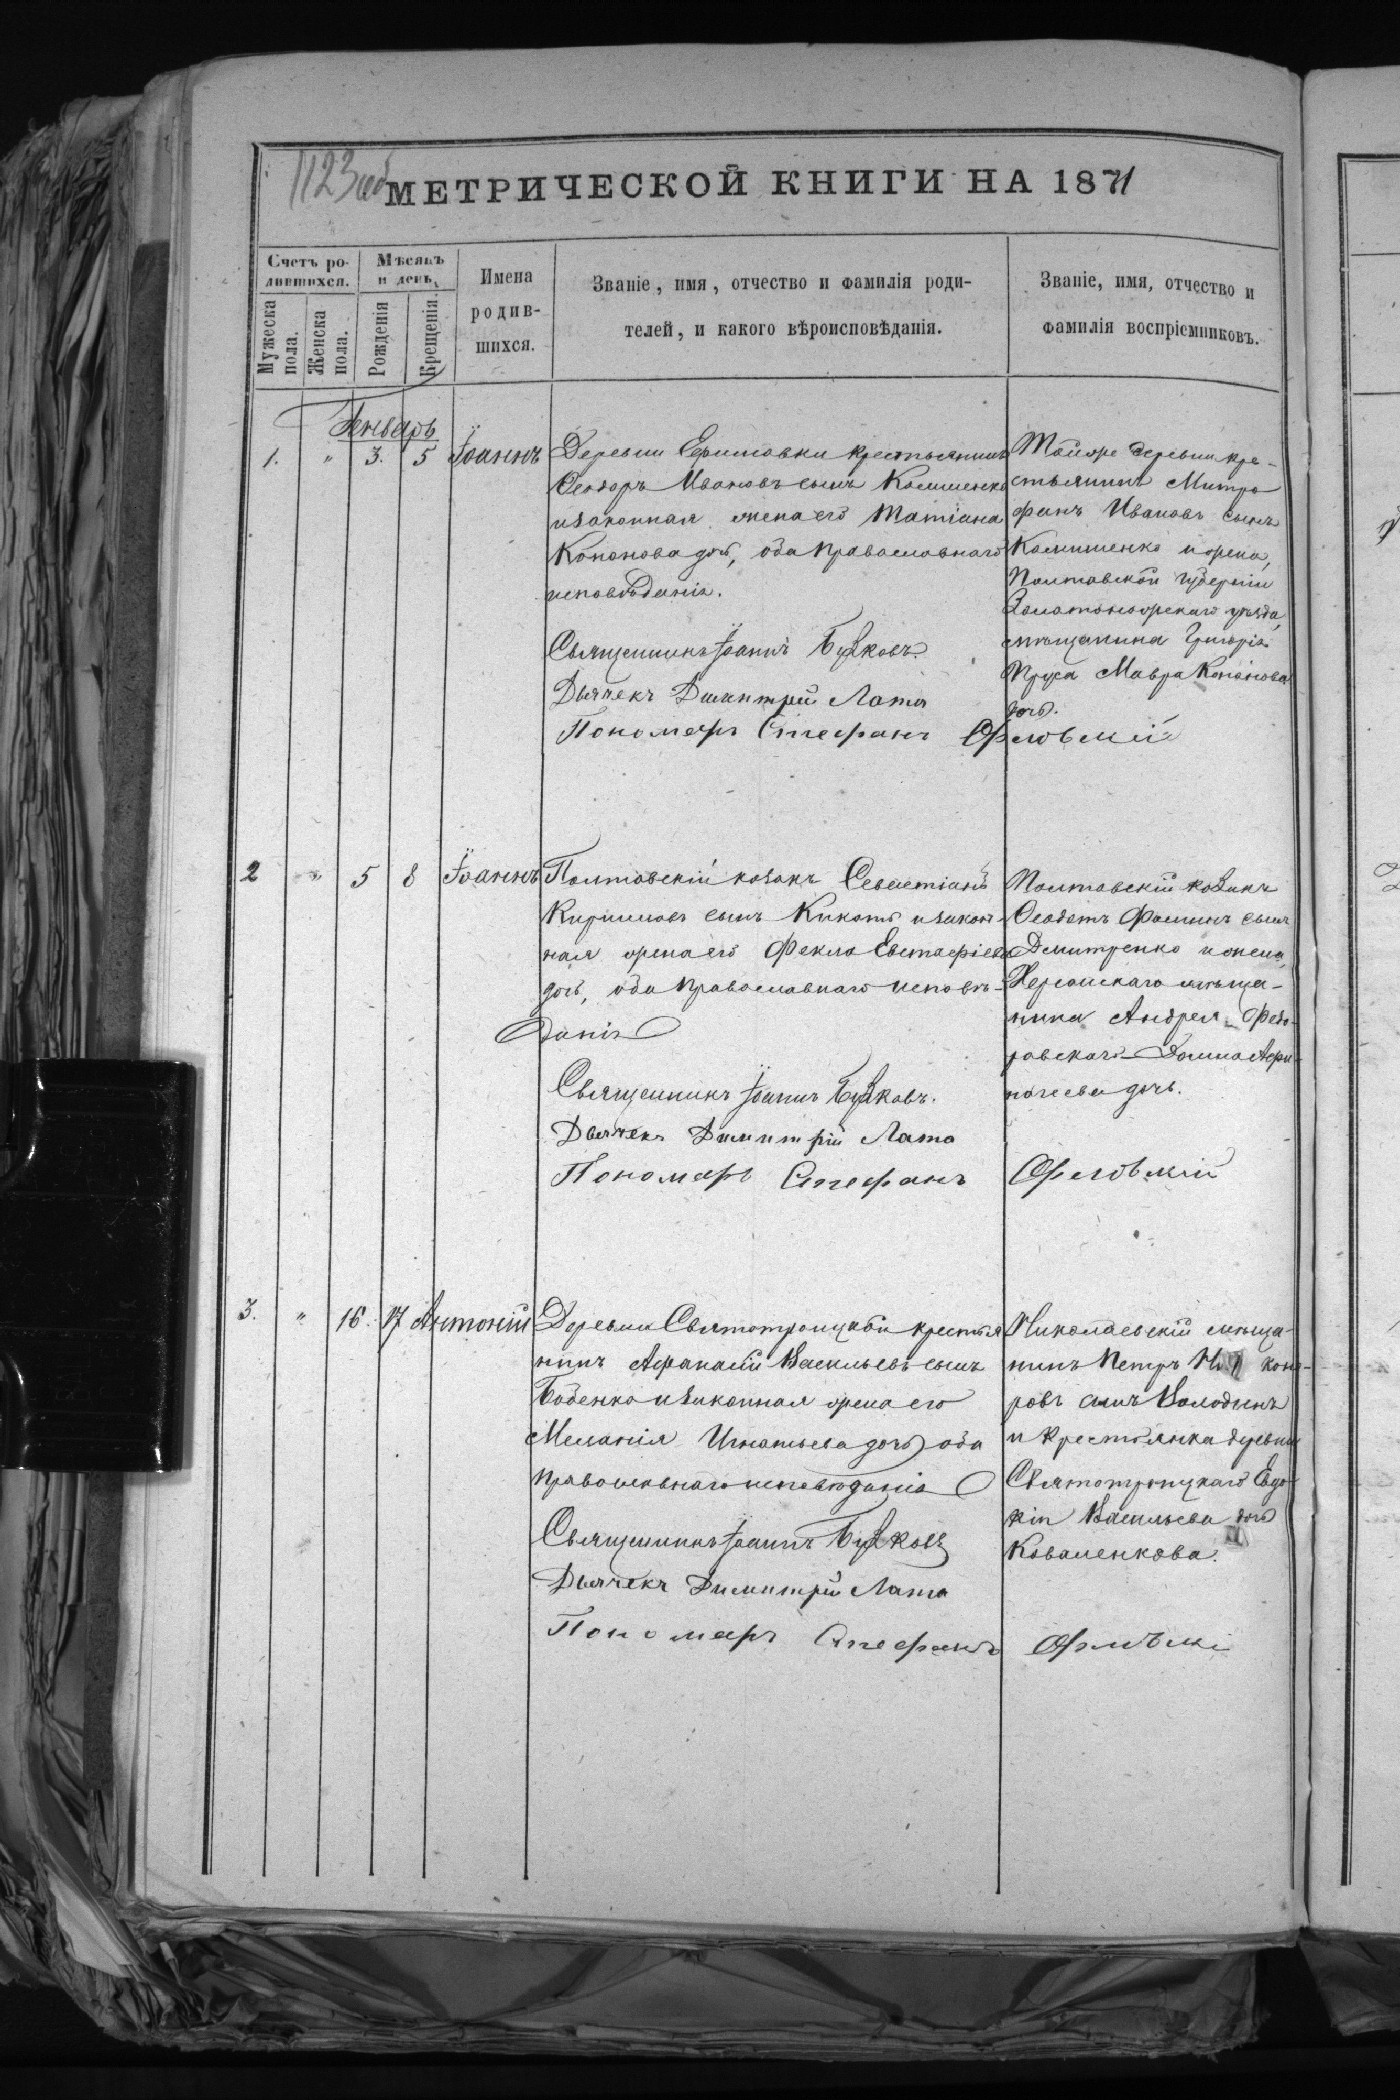 1123 об
МЕТРИЧЕСКОЙ КНИГИ НА 1871
Счетъ ро-
дившихся.
Мѣсяцъ
и день.
Имена
родив-
шихся.
Званіе, имя, отчество и фамилія роди-
телей, и какого вѣроисповѣданія.
Званіе, имя, отчество и
фамилія воспріемниковъ.
Мужеска
пола.
Женска
пола.
Рожденія
Крещенія.
Генварь
1. " 3. 5 Іоаннъ
Деревни Ефимовки крестьянинъ
Феодоръ Ивановъ сынъ Камшенко
и законная жена его Татіана
Кононова дочь, оба православнаго
исповѣданія.
Священникъ Іоаннъ
Дьячекъ Димитрій Лата
Пономарь Стефанъ Орловскій
Тойже деревни кре-
стьянинъ Митро
фанъ Ивановъ сынъ
и жена,
Полтавской губерніи
Золотоношскаго уѣзда,
мѣщанина Григорія
Пруса Мавра Кононова
дочь.
2 " 5 8 Іоаннъ
Полтавскій козакъ Севастіанъ
Кирилловъ сынъ Кикоть и закон-
ная жена его Фекла Евстафіева
дочь, оба православнаго исповѣ-
данія
Священникъ Іоаннъ
Дьячекъ Димитрій Лата
Пономарь Стефанъ Орловскій
Полтавскій козакъ
Феодотъ Фоминъ сынъ
Дмитренко и жена,
Херсонскаго мѣща-
нина Андрея Федо-
ровскаго Домна
дочь.
3. " 16. 17 Антоній
Деревни Святотроицкой крестья
нинъ Афанасій Васильевъ сынъ
Бабенко и законная жена его
Меланія Игнатьева дочь, оба
православнаго исповѣданія
Священникъ Іоаннъ
Дьячекъ Димитрій Лата
Пономарь Стефанъ Орловскій
Николаевскій мѣща-
нинъ Петръ Ни кано-
ровъ сынъ Володинъ
и крестьянка деревни
Святотроицкаго Евдо
кія Васильева дочь
Коваленкова.